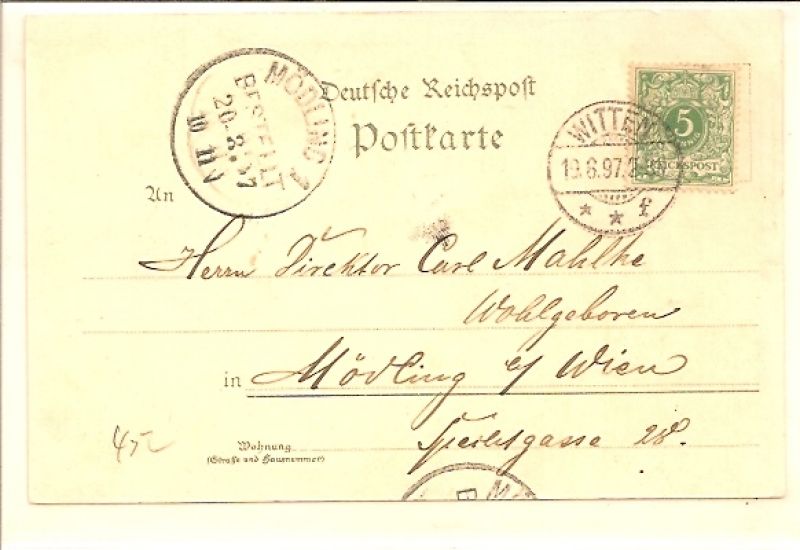 Deutsche Reichspost
Postkarte
MÖDLING 1
BESTELLT
20.8.97
10 11 V
WITTEN
19.8.97.
* * f
5
REICHSPOST
An
Herrn Direktor Carl Mahlke
Wohlgeboren
in Mödling b/ Wien
28.
Wohnung
(Straße und Hausnummer)
45